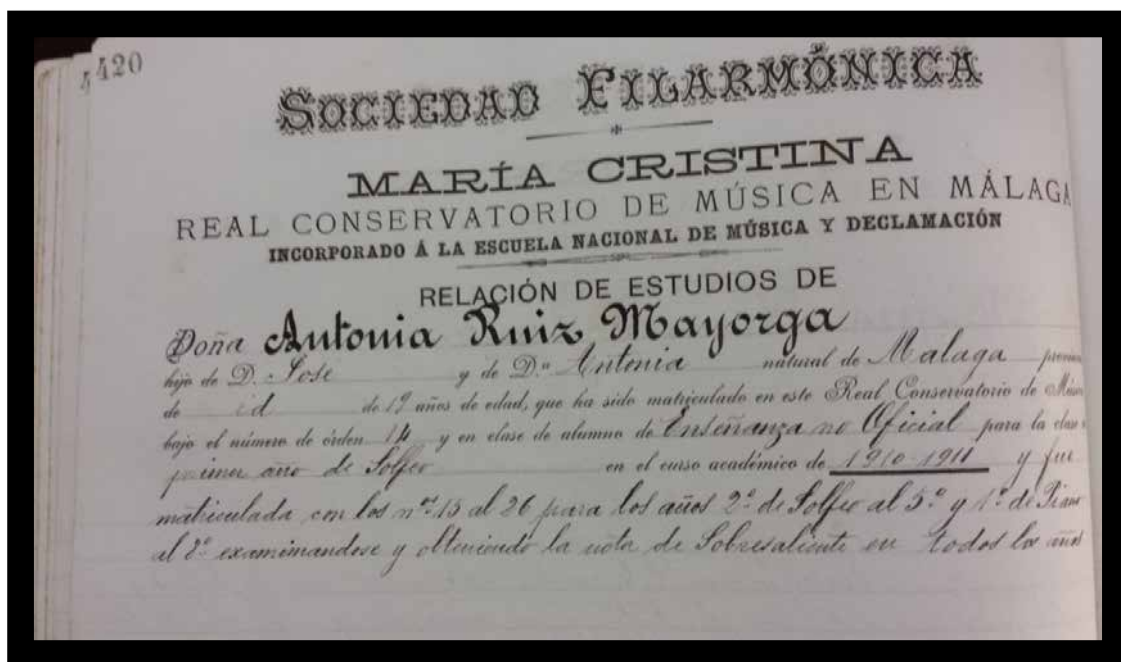 420
SOCIEDAD FILARMÓNICA
MARÍA CRISTINA
REAL CONSERVATORIO DE MÚSICA EN MÁLAGA
INCORPORADO Á LA ESCUELA NACIONAL DE MÚSICA Y DECLAMACIÓN
RELACIÓN DE ESTUDIOS DE
Doña Antonia Ruiz Mayorga
hijo de D. José y de D.ª Antonia natural de Malaga
de id de 19 años de edad, que ha sido matriculado en este Real Conservatorio de
bajo el número de órden 14 y en clase de alumno de Enseñanza no Oficial para la clase
primer año de Solfeo en el curso académico de 1910-1911 y fue
matriculada con los nos 15 al 26 para los años 2º de Solfeo al 5º y 1º de Piano
al 8º examimandose y obteniendo la nota de Sobresaliente en todos los años